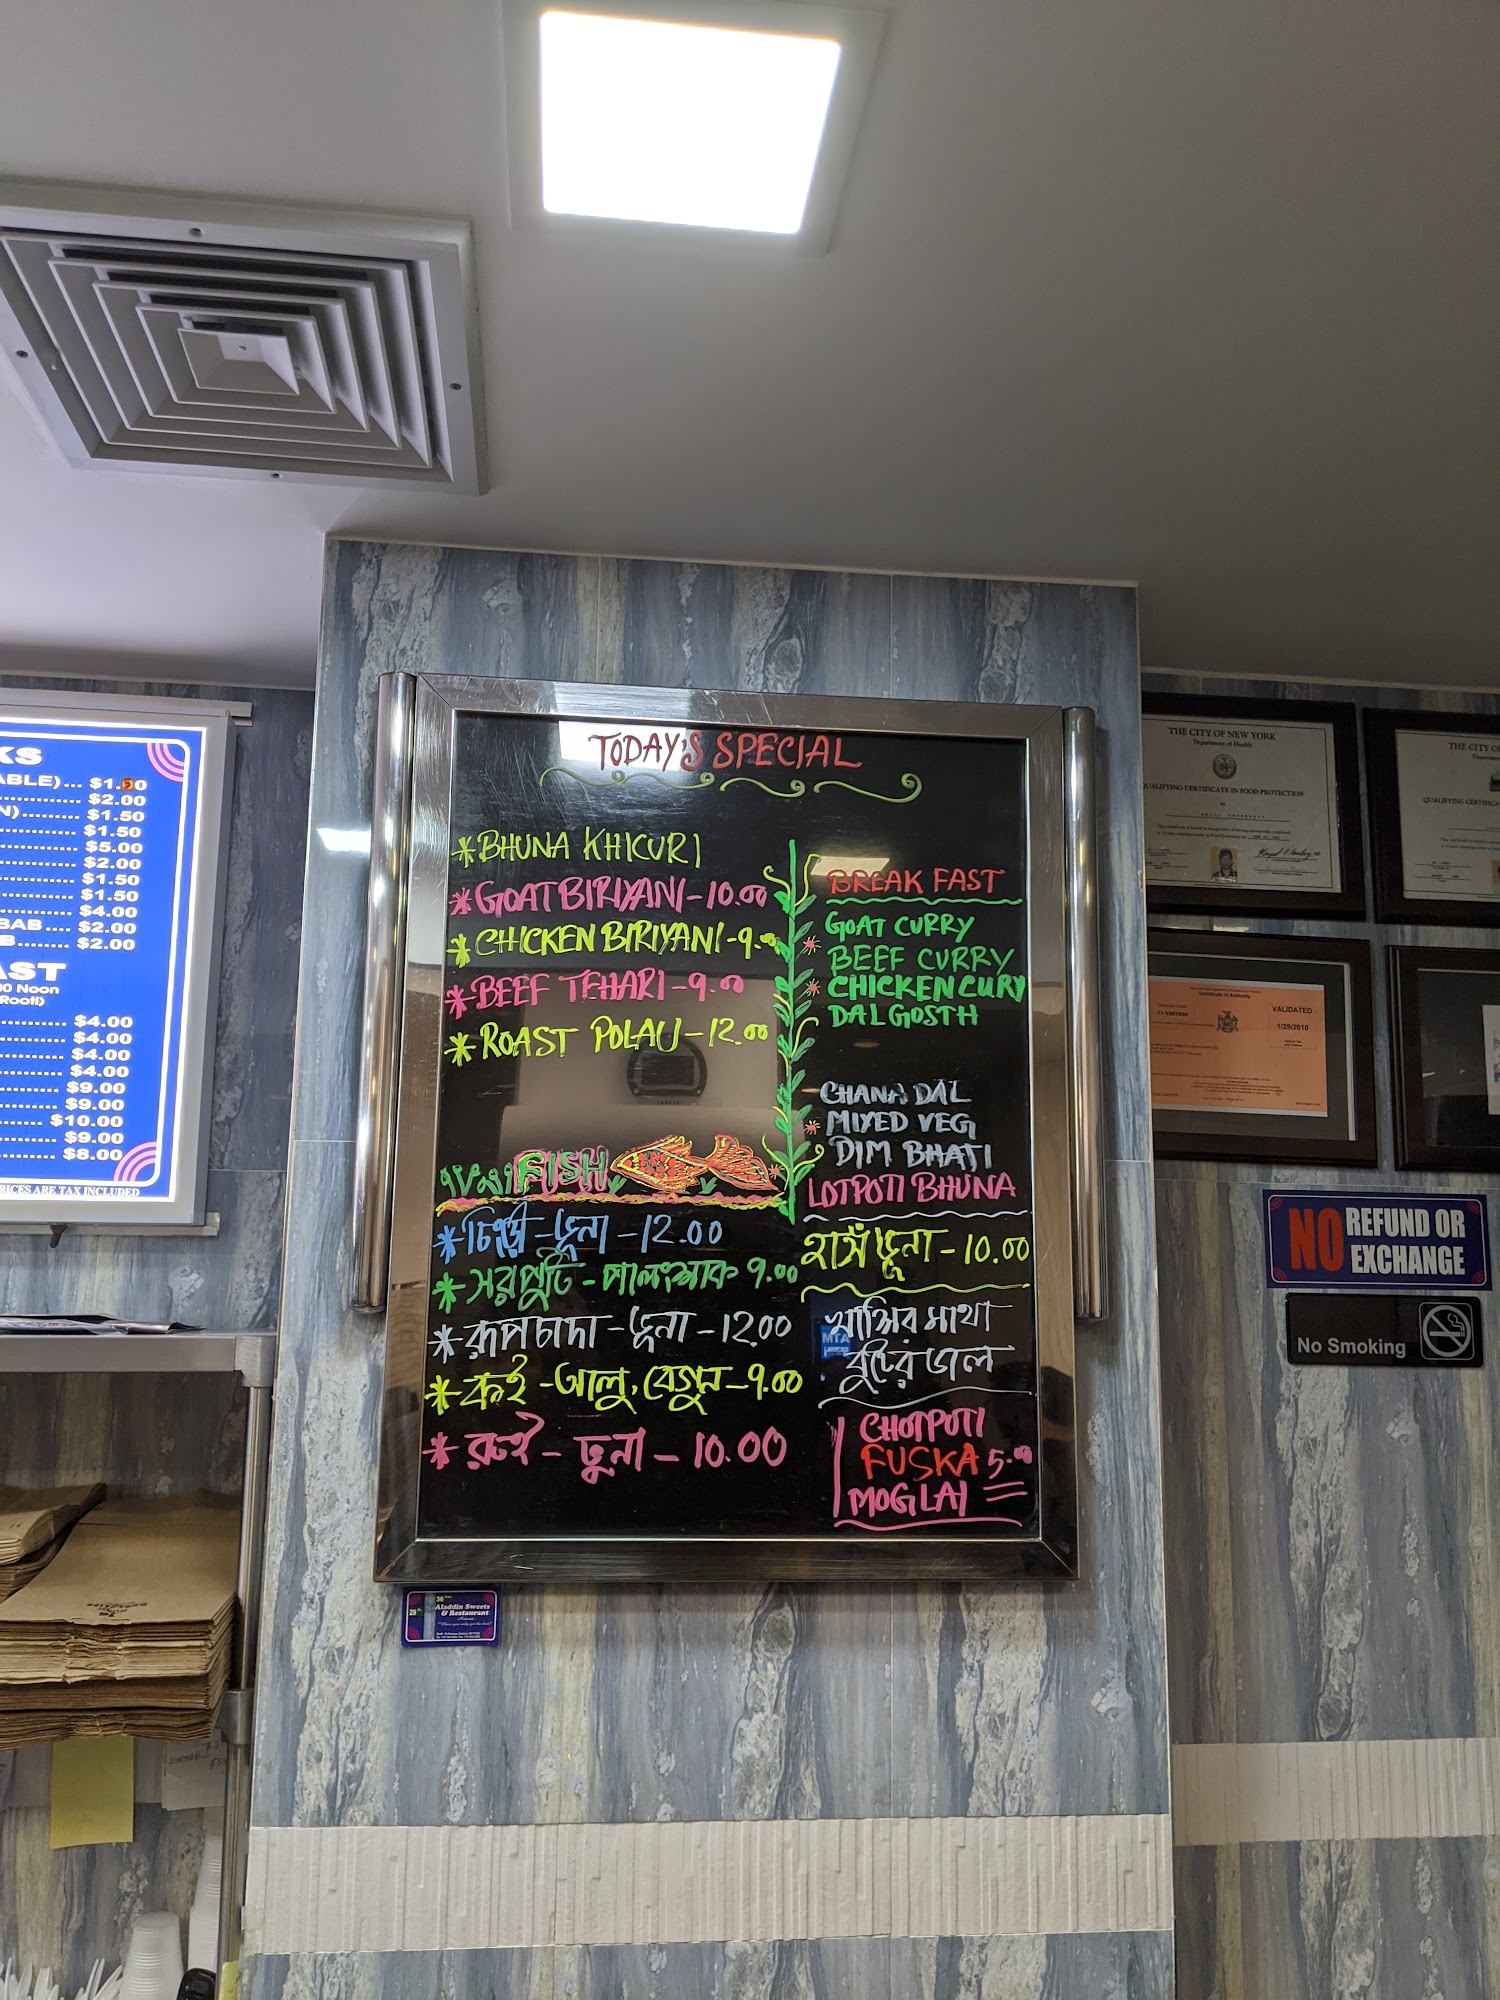 KS
ABLE)... $1.50
$2.00
N).......... $1.50
$1.50
$5.00
$2.00
$1.50
$1.50
$4.00
BAB.... $2.00
B........ $2.00
AST
Noon
Rooti)
$4.00
$4.00
$4.00
$4.00
$9.00
$9.00
$10.00
$9.00
$8.00
RICES ARE TAX INCLUDED
TODAY'S SPECIAL
* BHUNA KHICURI
* GOAT BIRIYANI - 10.00
* CHICKEN BIRIYANI - 9.00
* BEEF TEHARI - 9.00
* ROAST POLAU - 12.00
FISH
* চিংড়ী - ভূনা - 12.00
* সরপুটি - পালংশাক 9.00
* রূপচাদা - ভূনা - 12.00
* কই - আলু, বেগুন - 9.00
* রুই - ভুনা - 10.00
BREAK FAST
GOAT CURRY
BEEF CURRY
CHICKEN CURY
DAL GOSTH
CHANA DAL
MIXED VEG
DIM BHATI
LOTPOTI BHUNA
হাসঁ ভূনা - 10.00
খাসির মাথা
বুটের ডাল
CHOTPOTI
FUSKA 5.00
MOGLAI
Aladdin Sweets
& Restaurant
THE CITY OF NEW YORK
Department of Health
QUALIFYING CERTIFICATE IN FOOD PROTECTION
THE CITY O
QUALIFYING CERTIFICA
Certificate of Authority
VALIDATED
1/29/2010
NO REFUND OR
EXCHANGE
No Smoking
MTA